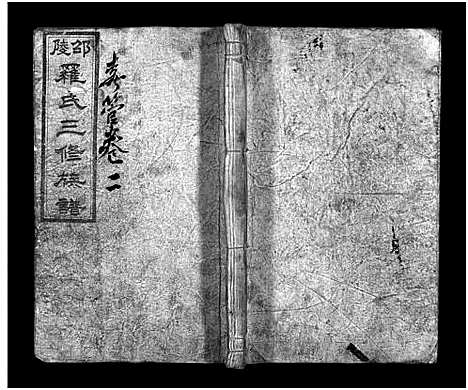 邵陵
羅氏三修族譜
卷二